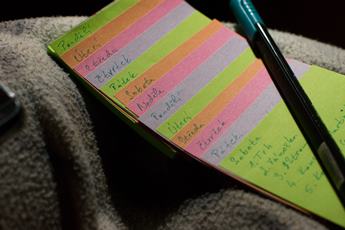 Pondělí
Úterí
Středa
Čtvrtek
Pátek
Sobota
Neděle
Pondělí
Úterí
Středa
Čtvrtek
Pátek
Sobota
1. Trh
2.
3.
4.
5.